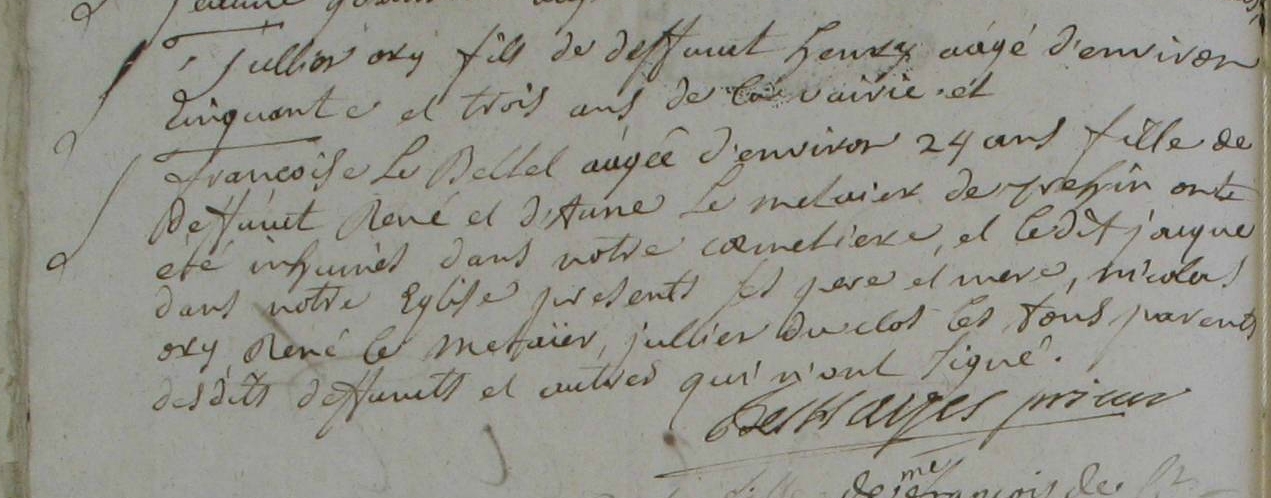 Jullien oxy fils de deffunt henry aâgé d'environ
Cinquante et trois ans de et
françoise Le Bellel aâgée d'environ 24 ans fille de
deffunt René et d'Anne Le metaier de ont
été inhumés dans notre cœmetiere, et ledit jacque
dans notre Eglise presents ses pere et mere, nicolas
oxy René le metaïer, jullien du clos les tous parents
desdits deffunts et autres qui n'ont signé.
prieur
françois de